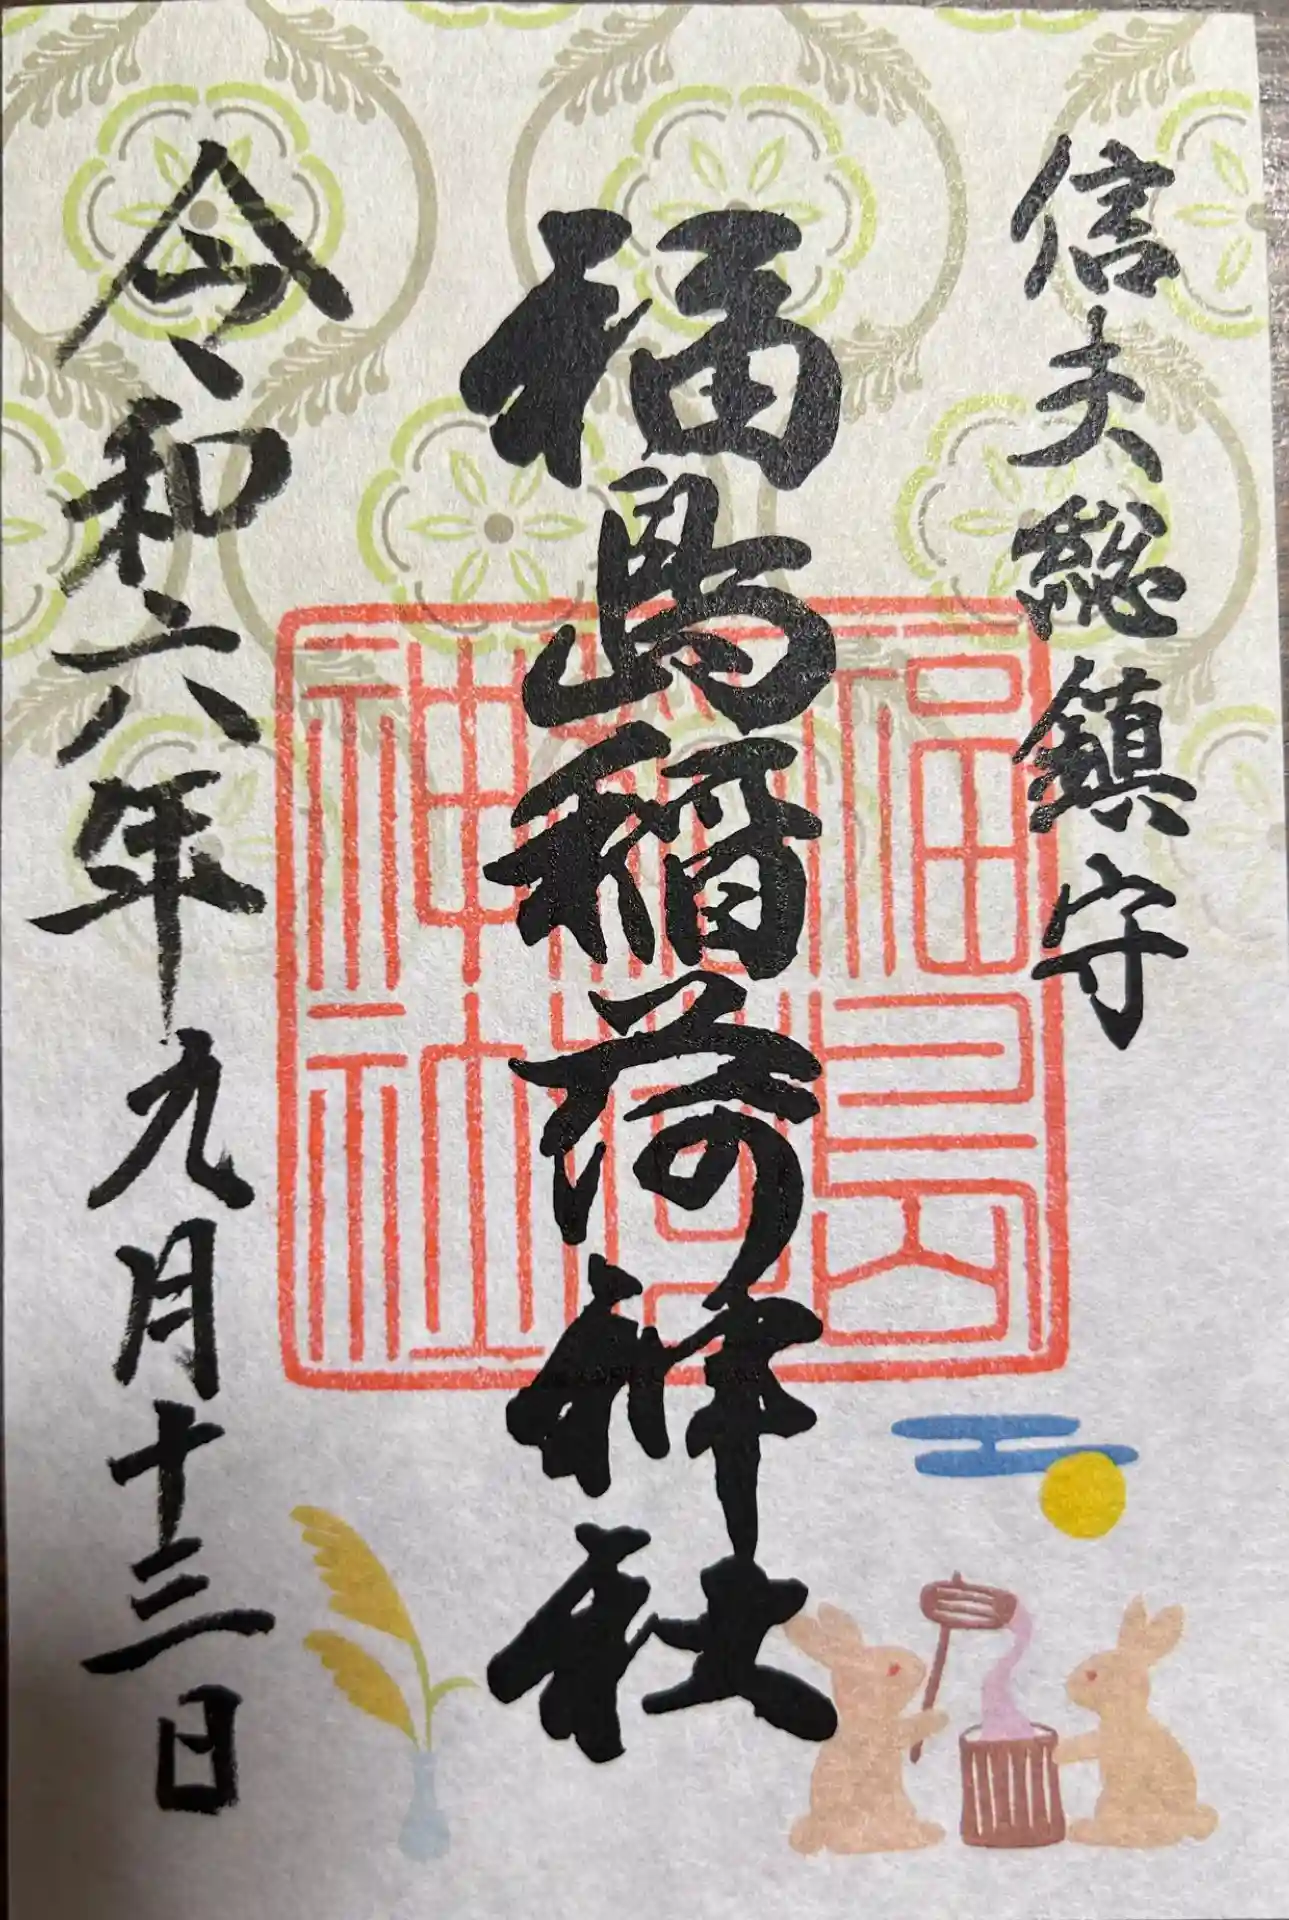 信夫総鎮守
福島稲荷神社
福島稲荷神社
令和六年九月十三日